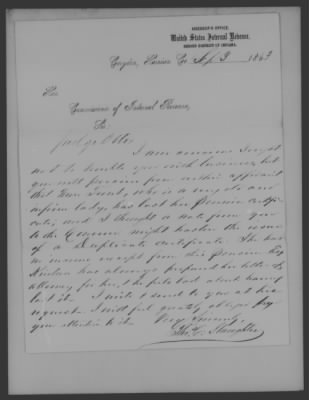 ASSESSOR'S OFFICE,
United States Internal Revenue,
SECOND DISTRICT OF INDIANA,
Corydon, Harrison Co. 3 1863
Hon
Commissioner of Internal Revenue,
Sir:
Judge
I am anxious
not to trouble you with business, but
you will perceive from within affidavit
that, who is a very old and
infirm lady, has lost her Pension Certifi-
cate, and I thought a note from you
to the Commr might hasten the issue
of a Duplicate Certificate. She has
no income except from this Pension
has always prepared her letter of
attorney for her, & she feels bad about having
lost it. I write & send to you at her
request. I will feel greatly obliged for
your attention to it. Very Sincerely,
Slaughter